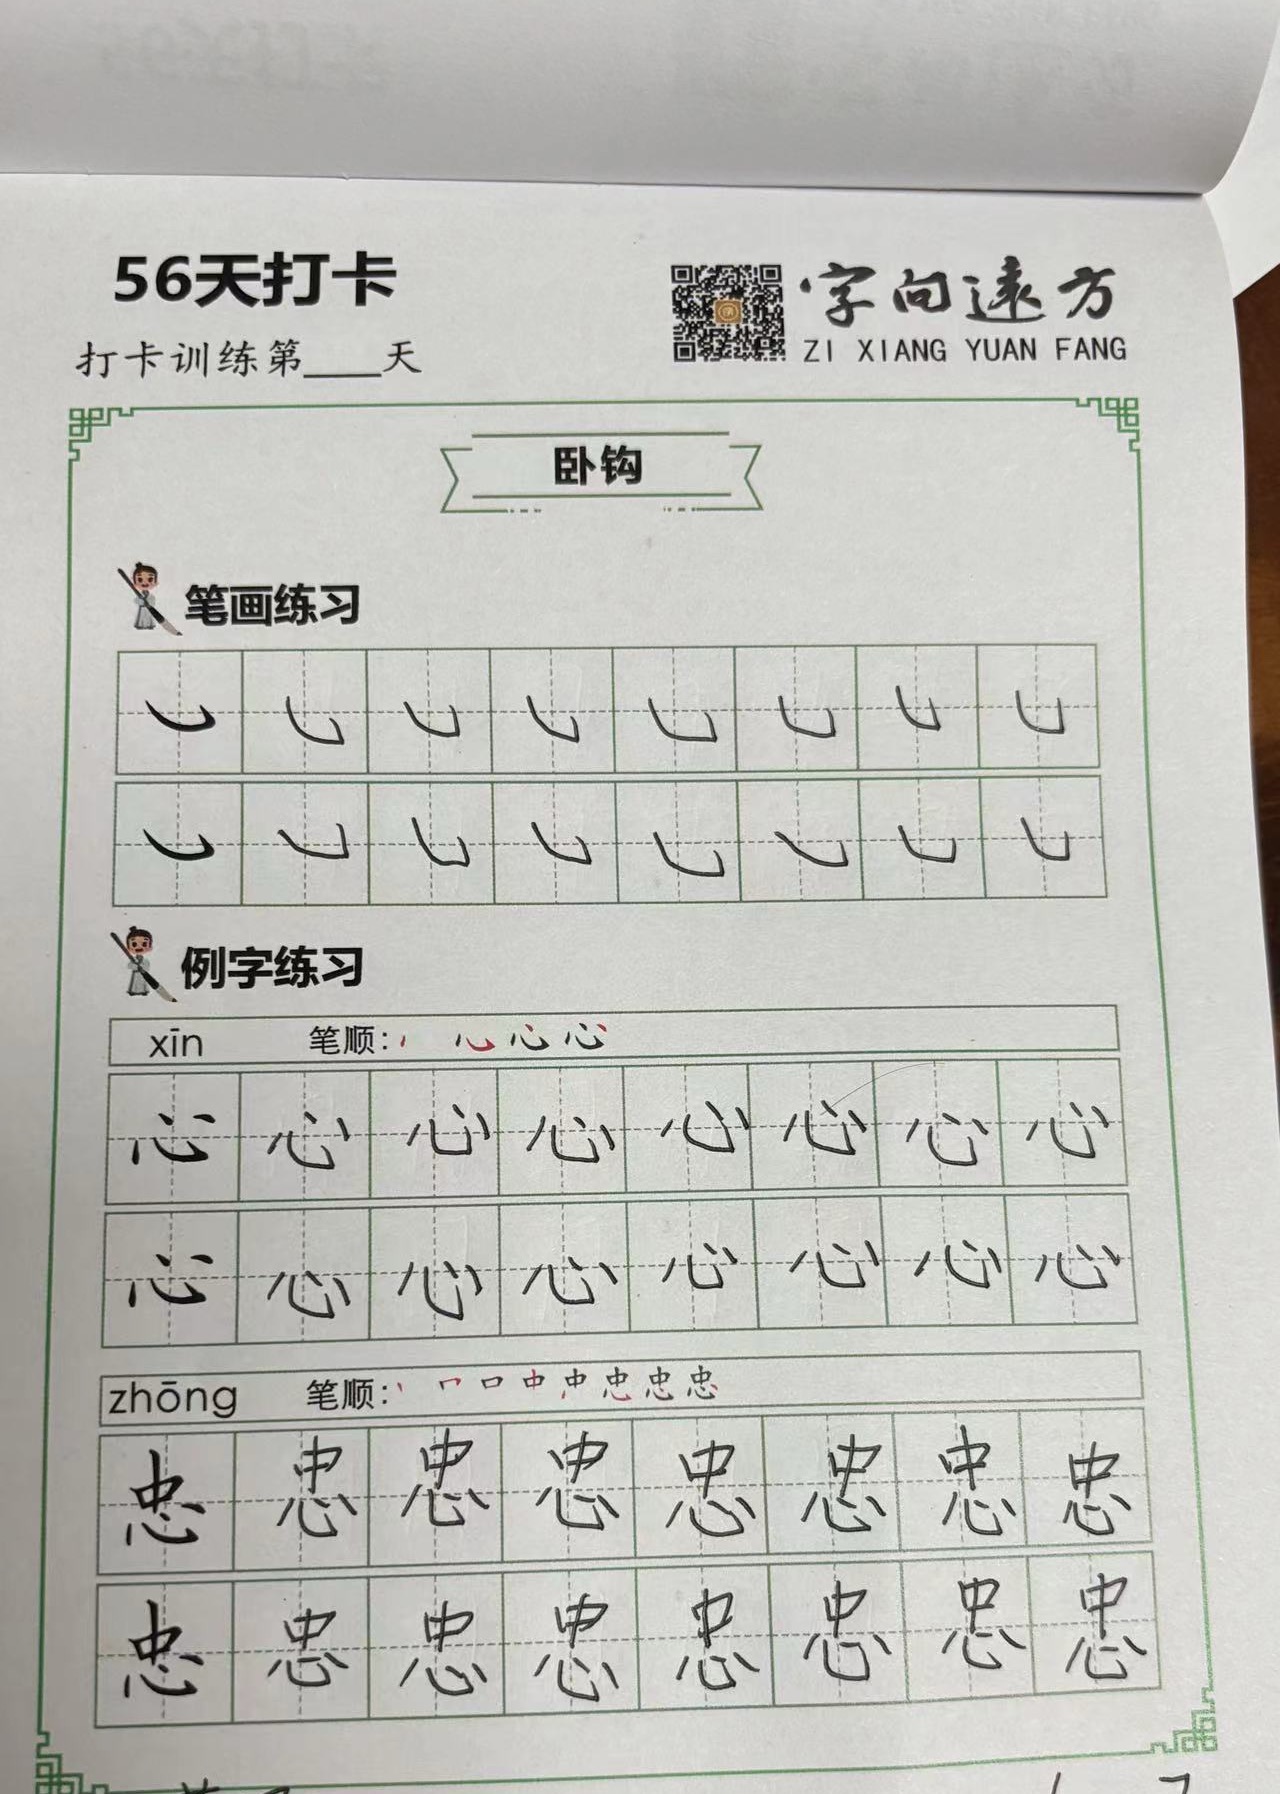 56天打卡
字向远方
打卡训练第____天
ZI XIANG YUAN FANG
卧钩
笔画练习
㇃ ㇃ ㇃ ㇃ ㇃ ㇃ ㇃ ㇃
㇃ ㇃ ㇃ ㇃ ㇃ ㇃ ㇃ ㇃
例字练习
xīn 笔顺:
心 心 心 心 心 心 心 心
心 心 心 心 心 心 心 心
zhōng 笔顺:
忠 忠 忠 忠 忠 忠 忠 忠
忠 忠 忠 忠 忠 忠 忠 忠